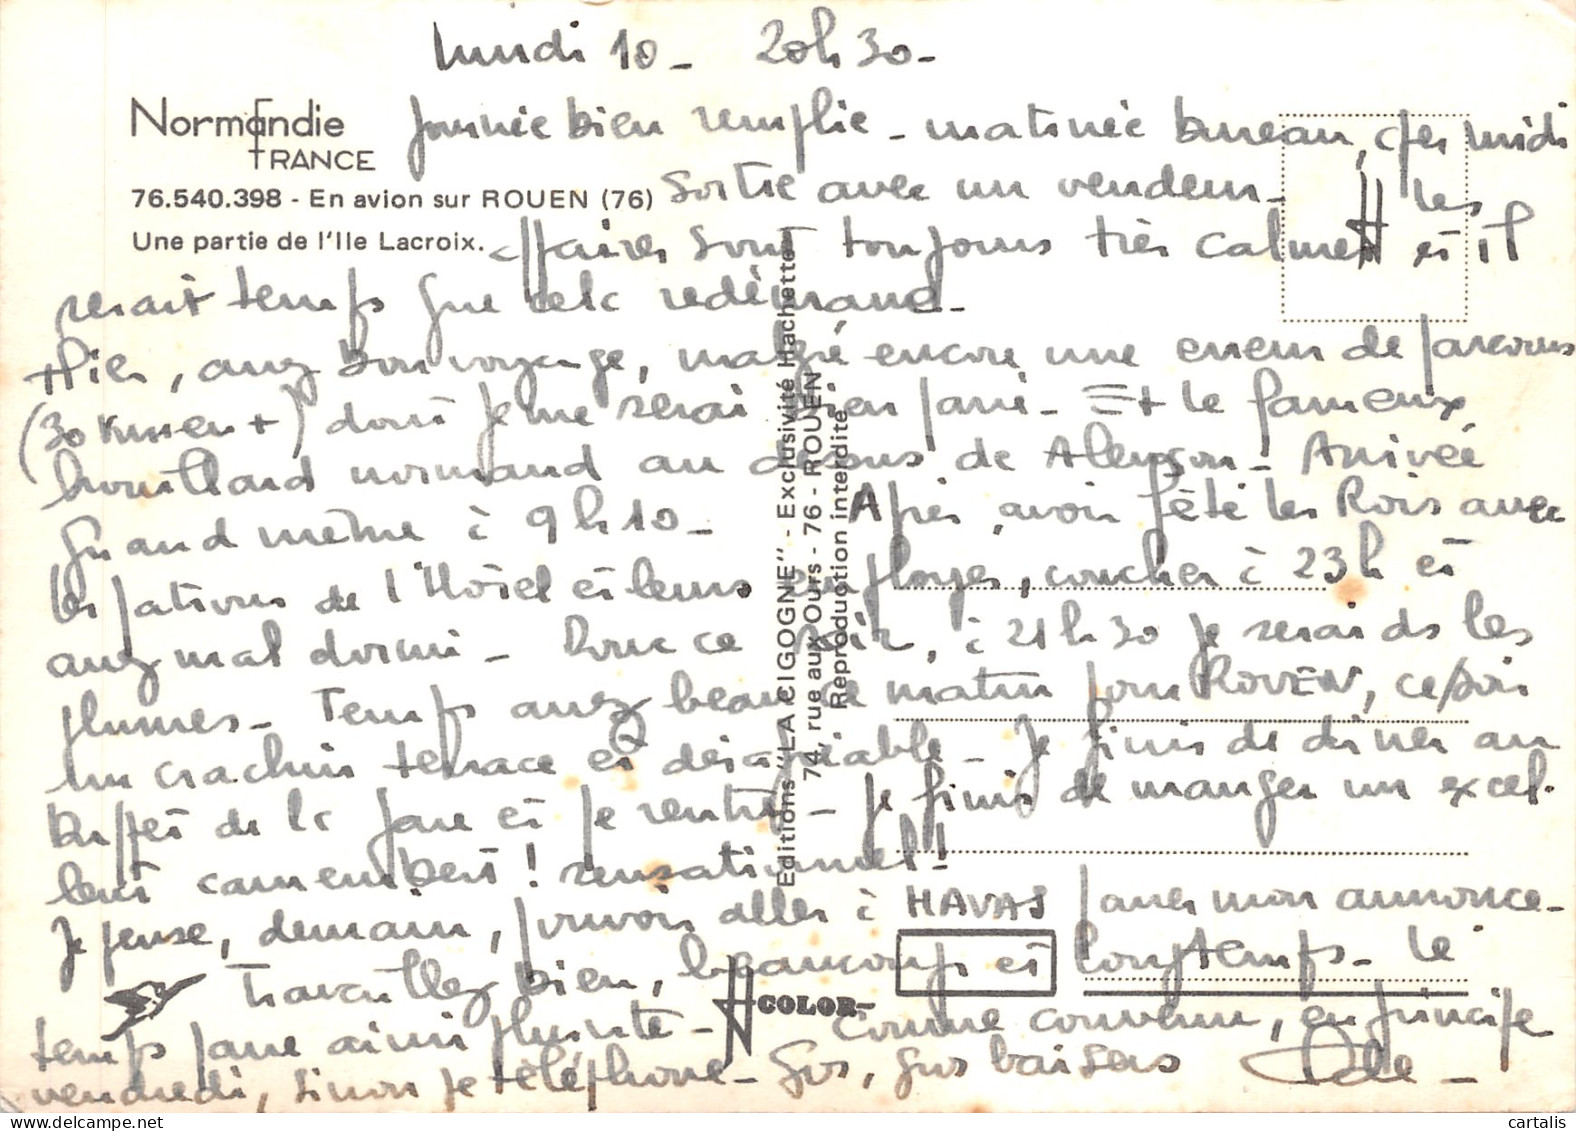 lundi 10 - 20h30 -
Normandie
FRANCE
Journée bien remplie - matinée bureau, après midi
76.540.398 - En avion sur ROUEN (76)
sortie avec un vendeur - les
Une partie de l'Ile Lacroix.
affaires sont toujours très calmes et il
serait temps que cela redémarre -
Hier, assez bon voyage, malgré encore une erreur de parcours
(30 Kms en +) dont je me serai bien passé - Et le fameux
brouillard normand au dessus de Alençon - Arrivée
quand même à 9h10 - Après avoir fêté les Rois avec
les patrons de l'Hôtel et leurs employés, coucher à 23h et
assez mal dormi - Donc ce soir, à 21h30 je serai ds les
plumes - Temps assez beau ce matin pour ROUEN, ce soir
un crachin tenace et désagréable - Je finis de diner au
Buffet de la Gare et je rentre - Je finis de manger un excel-
lent camembert ! sensationnel !
Je pense, demain, pouvoir aller à HAVAS passer mon annonce -
Travaillez bien, beaucoup et longtemps - le
temps passe ainsi plus vite - Comme convenu, en principe
vendredi, sinon je téléphone - Gros, gros baisers
Editions "LA CIGOGNE" - Exclusivité Hachette
74, rue aux Ours - 76 - ROUEN
Reproduction interdite
COLOR
cartalis